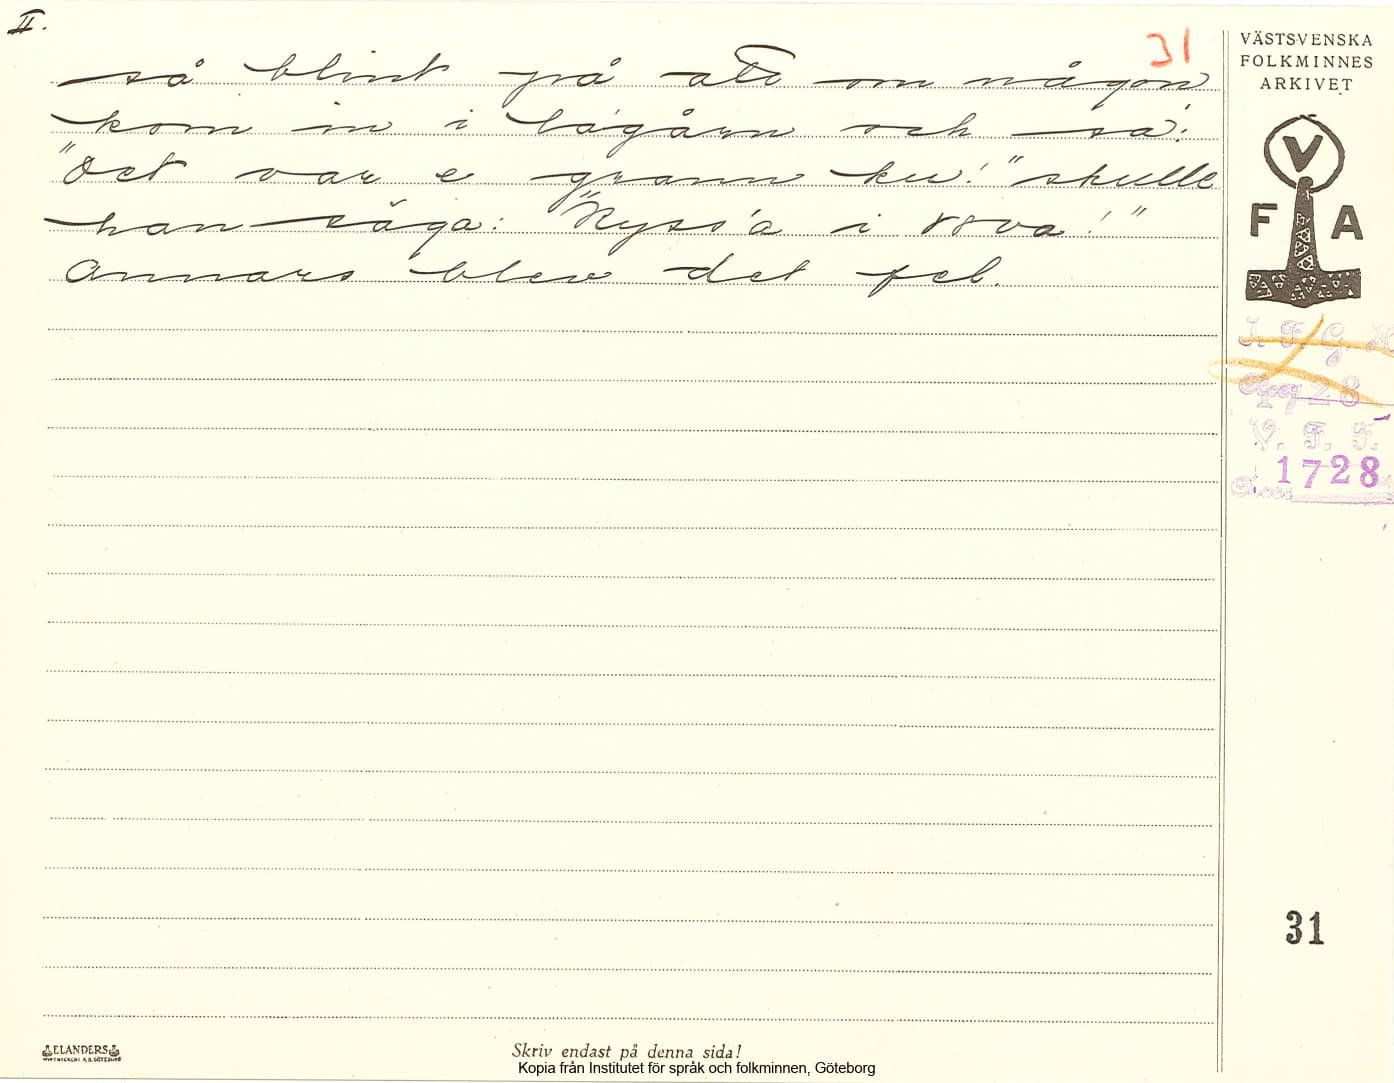 II.
31
så blint på att om någon
kom in i lágårn och sa:
"Det var e grann ku!" skulle
han säga: "Kyss'a i röva!"
Annars blev det fel.
VÄSTSVENSKA
FOLKMINNES
ARKIVET
V
F A
I. F. G. H
V. F. F.
1728
31
ELANDERS
Skriv endast på denna sida!
Kopia från Institutet för språk och folkminnen, Göteborg